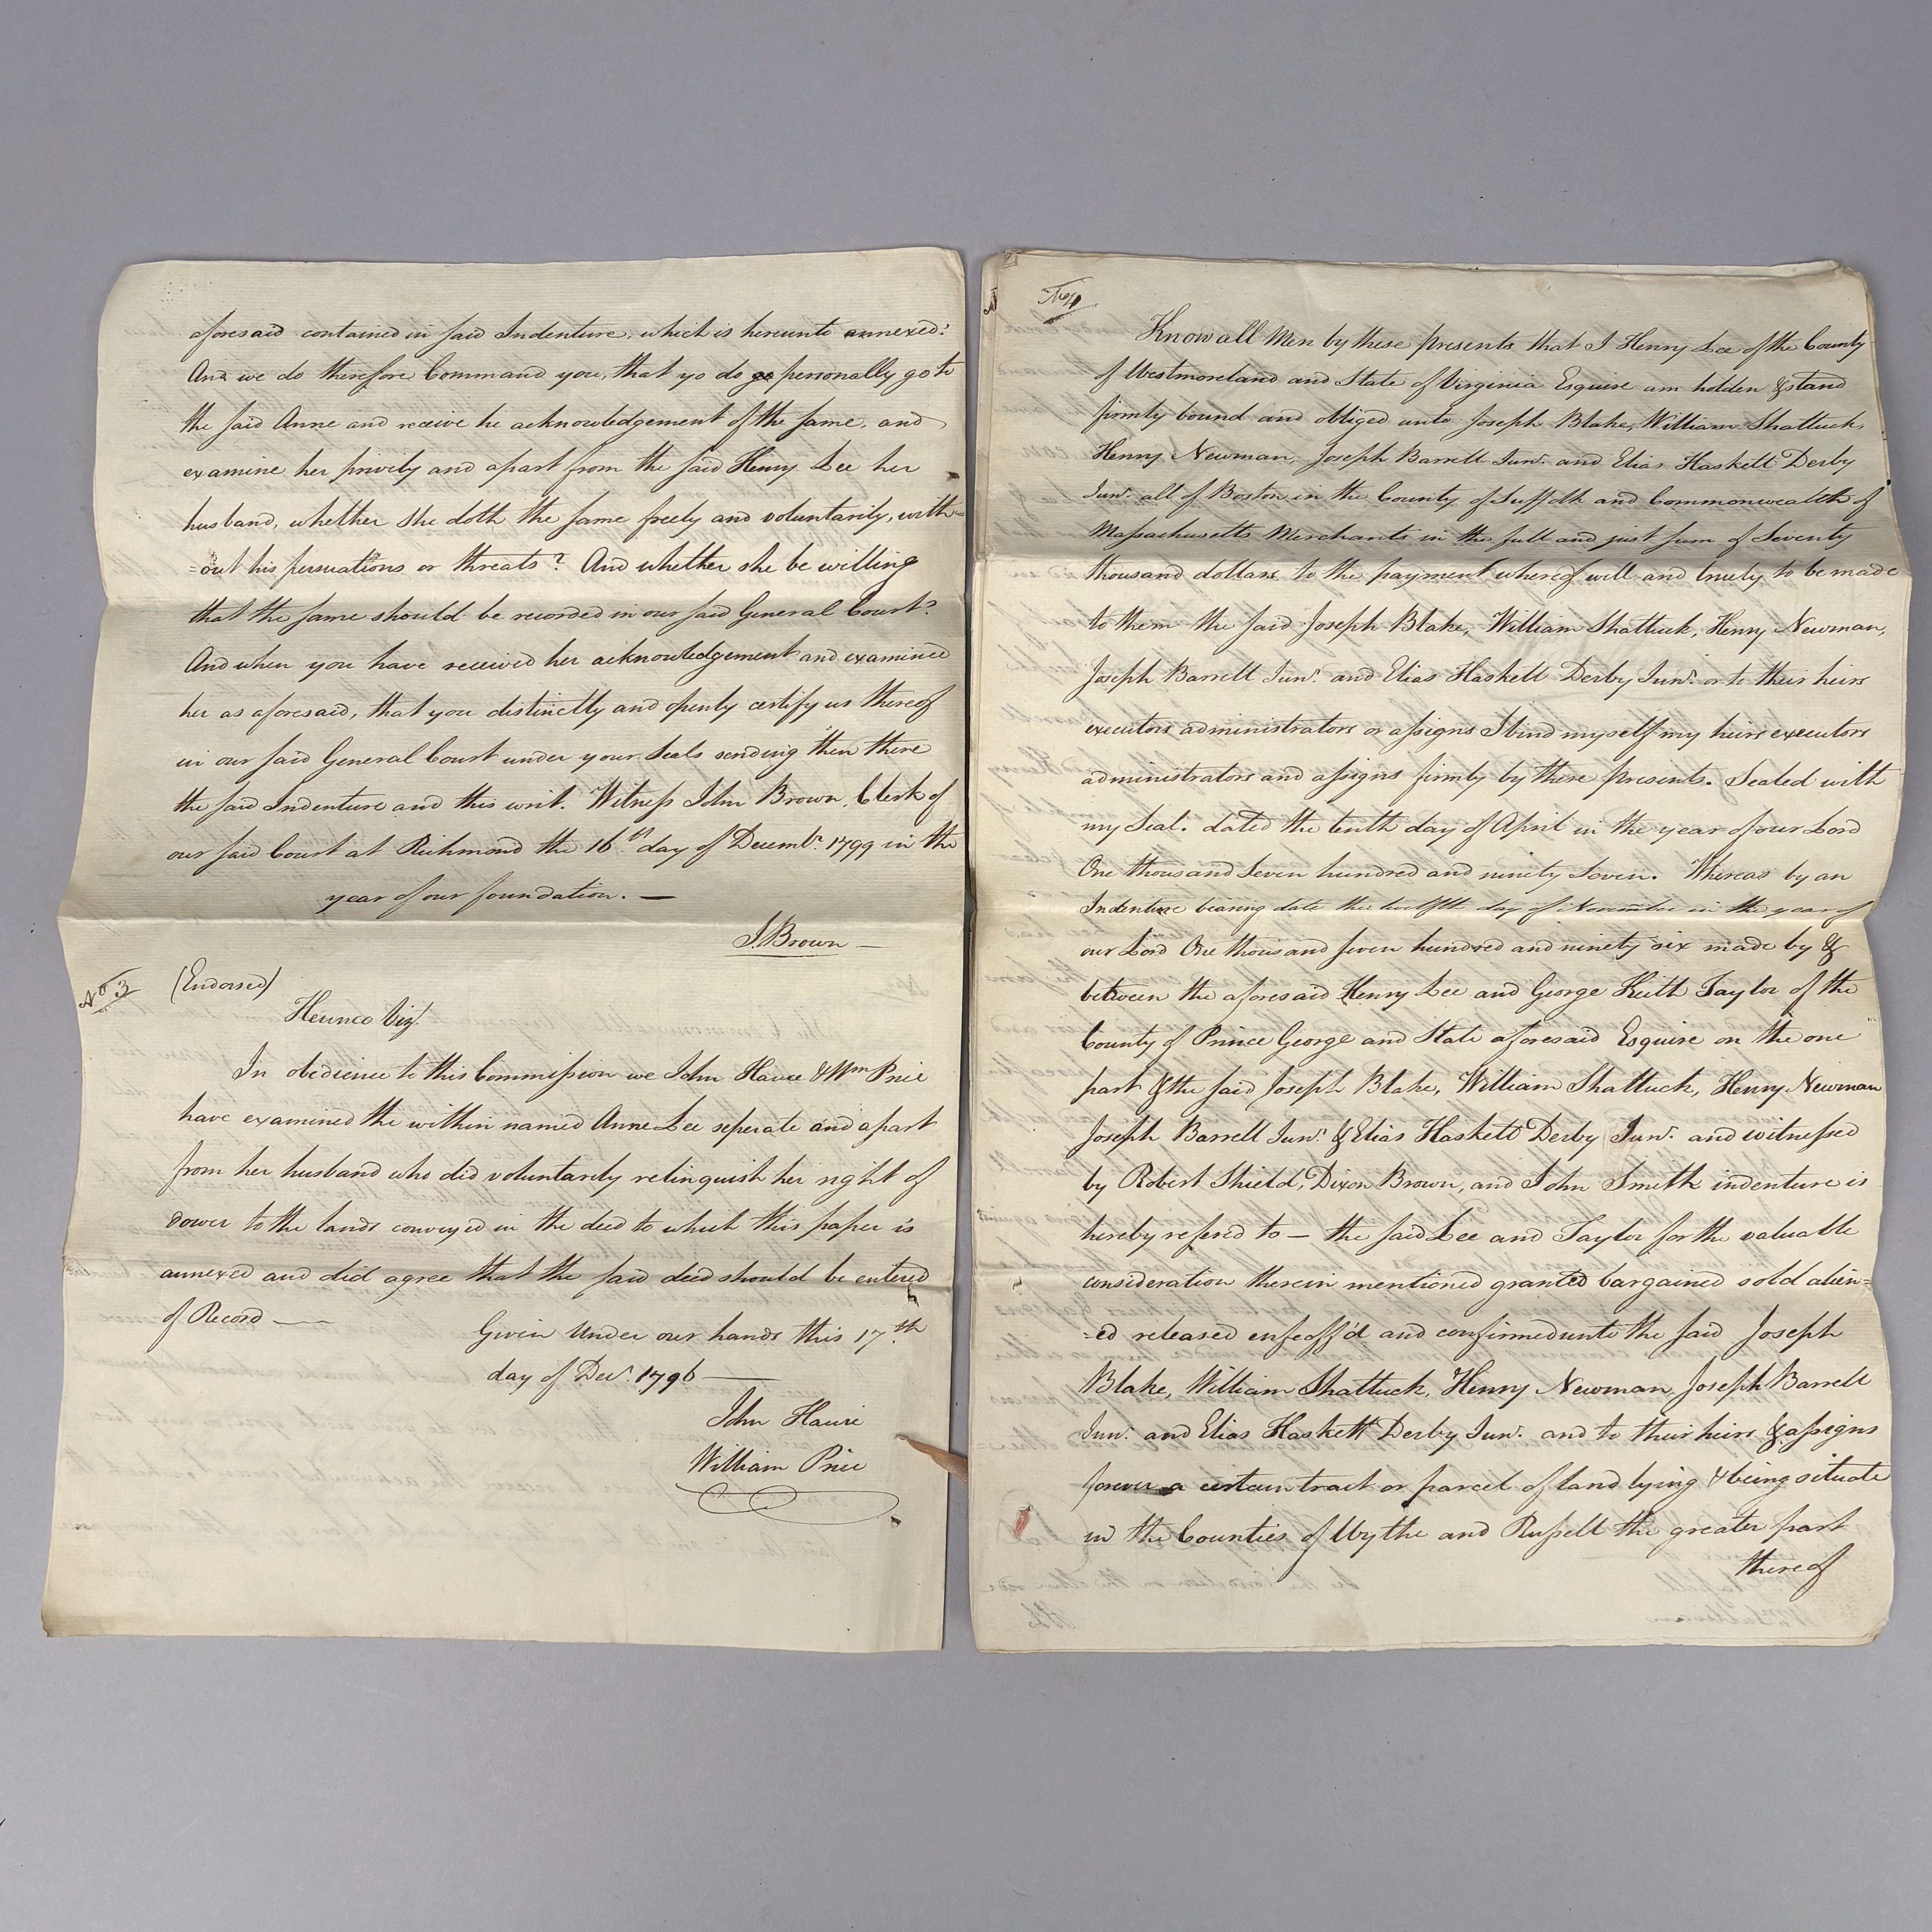 aforesaid contained in said Indenture, which is hereunto annexed?
And we do therefore Command you, that yo do go personally go to
the said Anne and receive he acknowledgement of the same, and
examine her privily and apart from the said Henry Lee her
husband, whether she doth the same freely and voluntarily, with-
=out his persuations or threats? And whether she be willing
that the same should be recorded in our said General Court?
And when you have received her acknowledgement and examined
her as aforesaid, that you distinctly and openly certify us thereof
in our said General Court under your Seals sending then there
the said Indenture and this writ. Witness John Brown, Clerk of
our said Court at Richmond the 16th day of Decembr. 1799 in the
year of our foundation. —
J. Brown —
No 3
(Endorsed)
Henrico Viz.
In obedience to this Commission we John Hawe & Wm Price
have examined the within named Anne Lee seperate and apart
from her husband who did voluntarily relinquish her right of
dower to the lands conveyed in the deed to which this paper is
annexed and did agree that the said deed should be entered
of Record —
Given Under our hands this 17th
day of Decr. 1796 —
John Hawie
William Price
No 4
Know all Men by these presents that I Henry Lee of the County
of Westmoreland and State of Virginia Esquire am holden & stand
firmly bound and obliged unto Joseph Blake, William Shattuck,
Henry Newman, Joseph Barrell Junr. and Elias Haskett Derby
Junr. all of Boston in the County of Suffolk and Commonwealth of
Massachusetts Merchants in the full and just sum of Seventy
thousand dollars to the payment whereof will and truely to be made
to them the said Joseph Blake, William Shattuck, Henry Newman,
Joseph Barrell Junr. and Elias Haskett Derby Junr. or to their heirs
executors administrators or assigns I bind myself my heirs executors
administrators and assigns firmly by these presents. Sealed with
my Seal. dated the tenth day of April in the year of our Lord
One thousand Seven hundred and ninety Seven. Whereas by an
Indenture bearing date the twelfth day of November in the year of
our Lord One thousand seven hundred and ninety six made by &
between the aforesaid Henry Lee and George Keith Taylor of the
County of Prince George and State aforesaid Esquire on the one
part & the said Joseph Blake, William Shattuck, Henry Newman
Joseph Barrell Junr. & Elias Haskett Derby Junr. and witnessed
by Robert Shield, Dixon Brown, and John Smith indenture is
hereby refered to — the said Lee and Taylor for the valuable
consideration therein mentioned granted bargained sold alien=
=ed released enfeoff'd and confirmed unto the said Joseph
Blake, William Shattuck, Henry Newman, Joseph Barrell
Junr. and Elias Haskett Derby Junr. and to their heirs & assigns
forever a certain tract or parcel of land lying & being situate
in the Counties of Wythe and Russell the greater part
thereof